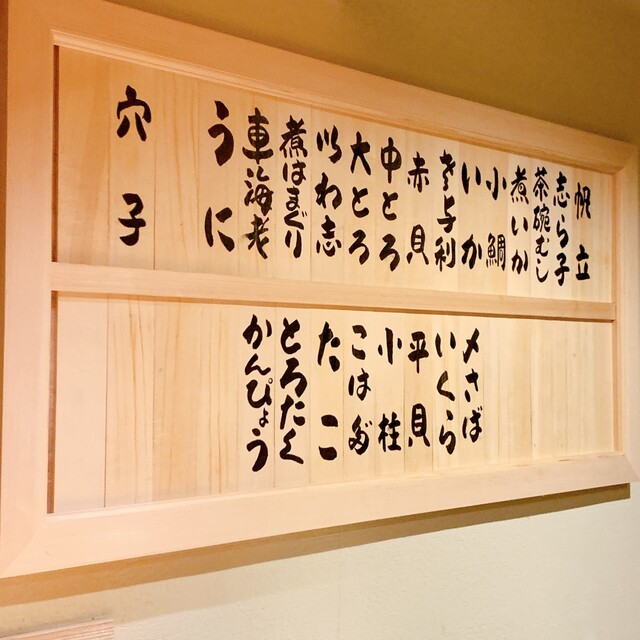 帆立
志ら子
茶碗むし
煮いか
小鯛
いか
さ与利
赤貝
中とろ
大とろ
いわ志
煮はまぐり
車海老
うに
穴子
〆さば
いくら
平貝
小柱
こはだ
たこ
とろたく
かんぴょう